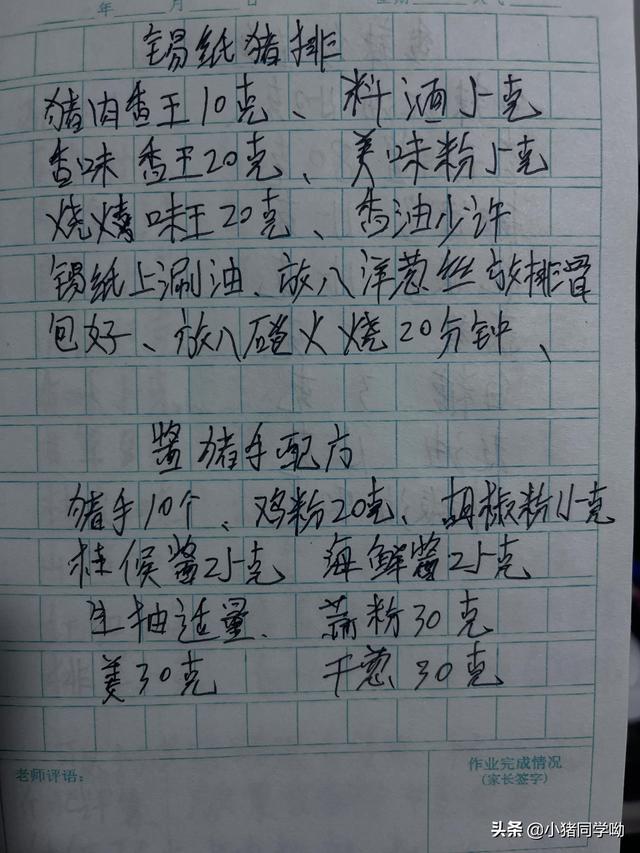 年 月 日
锡纸猪排
猪肉香王10克、料酒15克
香味香王20克、美味粉15克
烧烤味王20克、香油少许
锡纸上涮油、放八洋葱丝放排骨
包好、放八碴火烧20分钟、
酱猪手配方
猪手10个、鸡粉20克、胡椒粉15克
桂候酱25克 海鲜酱25克
生抽适量、蒜粉30克
姜30克 干葱30克
老师评语：
作业完成情况
(家长签字)
头条 @小猪同学呦